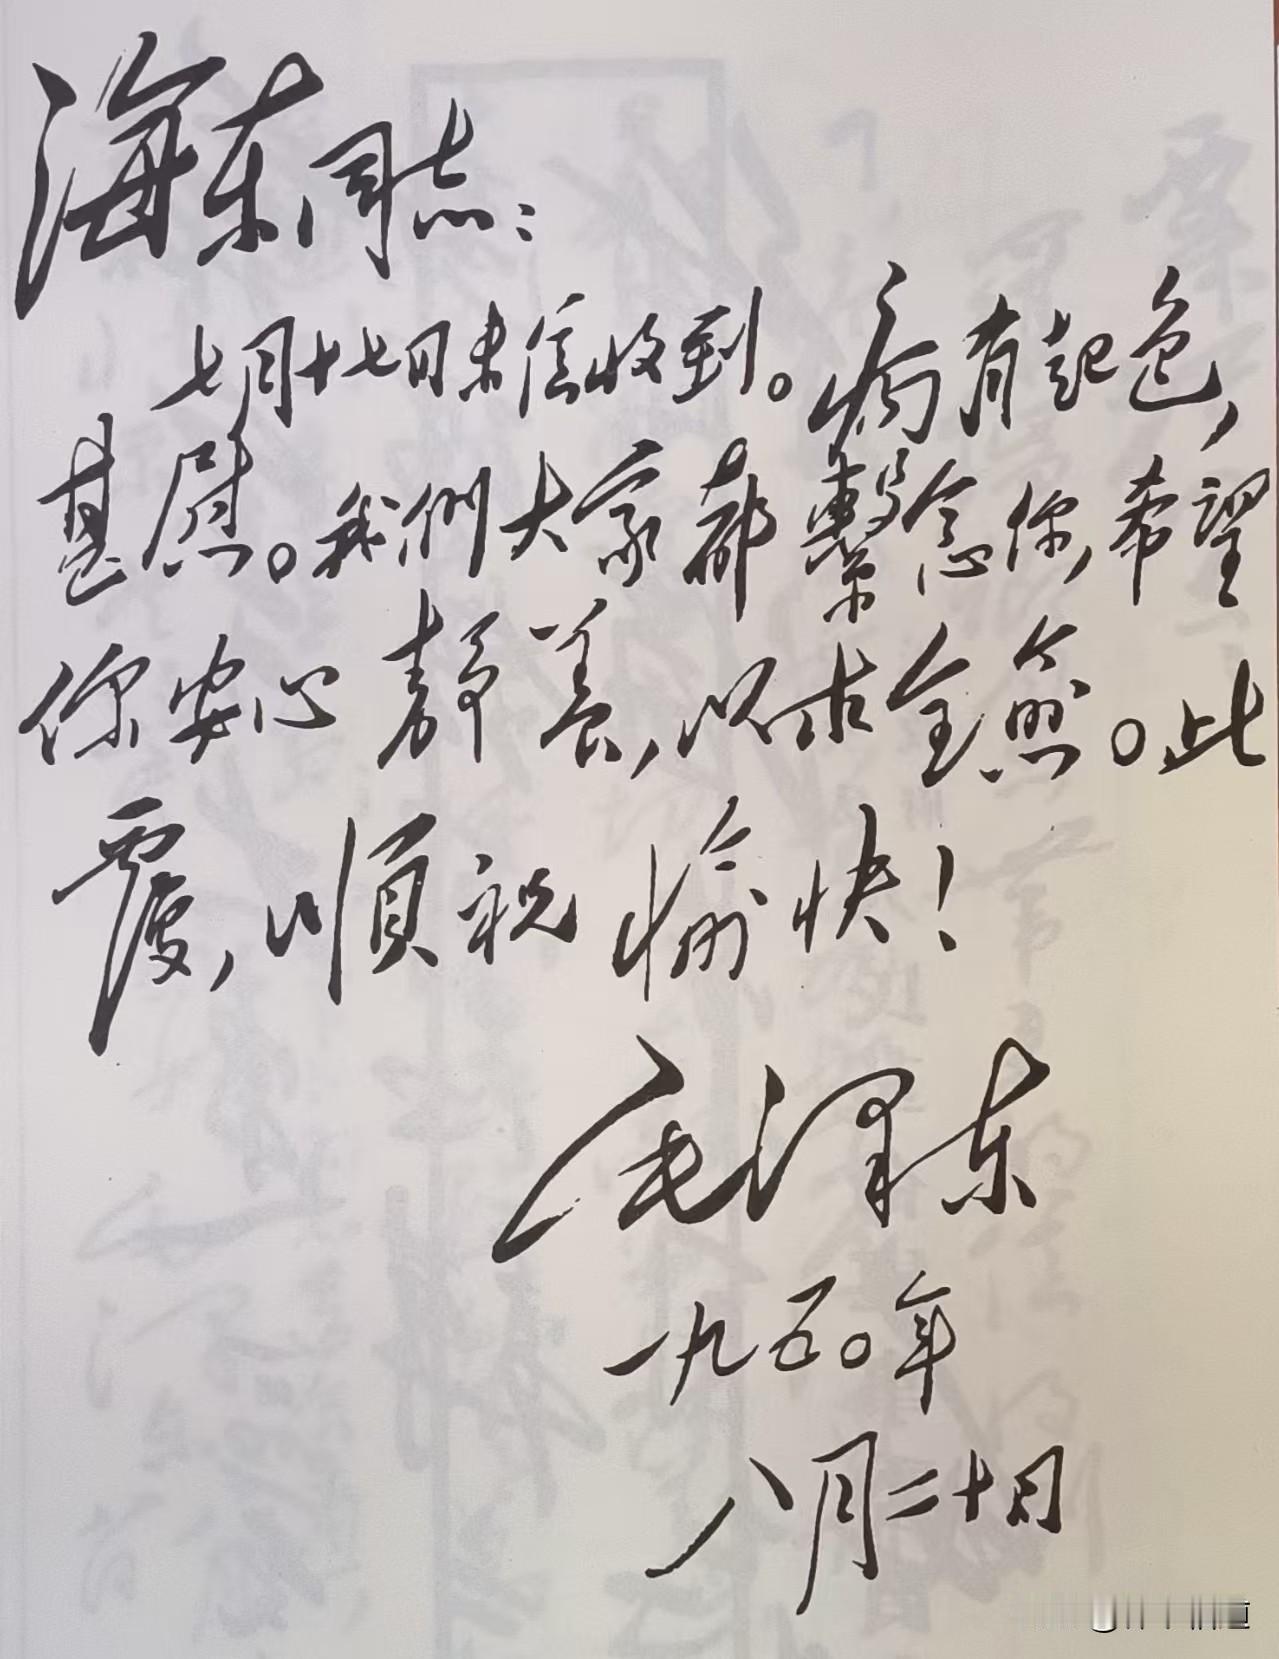 海东同志:
七月十七日来信收到。病有起色,
甚慰。我們大家都繫念你,希望
你安心静养,以求全愈。此
覆,順祝愉快!
毛泽东
一九五〇年
八月二十日